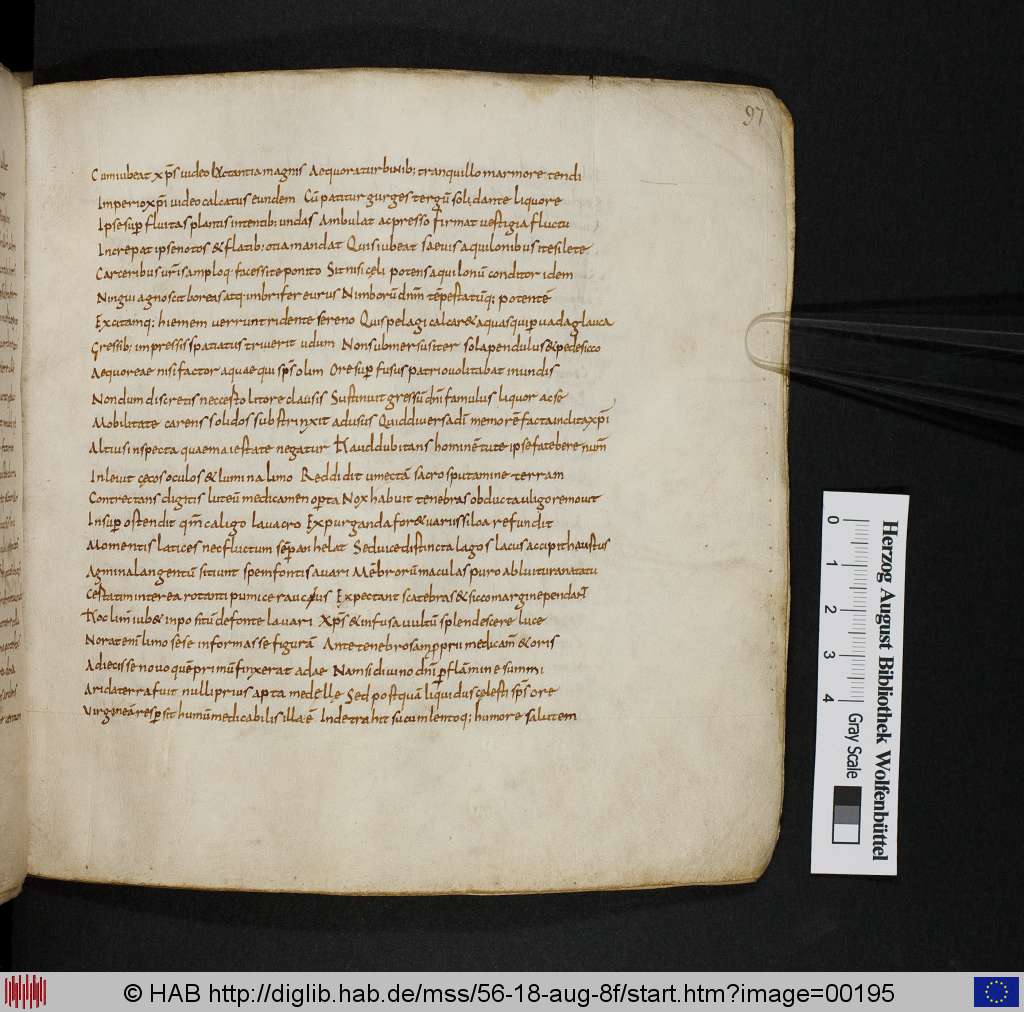 97
Cumiubeat xp̄s uideo luctantia magnis Aequora turbinib; tranquillo marmore tendi
Imperio xp̄i uideo calcatus eundem Cū patitur gurges tergū soli dante liquore
Ipse sup̄ fluitas plantis intentib; undas Ambulat ac presso firmat uestigia fluctu
Increpat ipse notos & flatib; otia mandat Quis iubeat saeuis aquilonibus ite silete
Carceribus ur̄is amploq; facessite ponto Sit nisi cęli potens aquilonū conditor idem
Ningui agnoscit boreas atq; imbrifer eurus Nimborū dn̄m tēpestatūq; potentē
Excitamq; hiemem uerrunt ridente sereno Quis pelagi calcar& aquas quis p̄ uada glauca
Gressib; impressis spatiatus triuerit udum Non submersus iter sola pendulus & pede sicco
Aequoreae nisi factor aquae qui sp̄s olim Ore sup̄ fusus patrio uolitabat in undis
Nondum discretis nec certo litore clausis Sustinuit gressū dn̄i famulus liquor ac se
Mobilitate carens solidos substrinxit ad usus Quid diuersa dī memorē facta inclita xp̄i
Altius inspecta quae maiestate negatur Haud dubitans hominē tute ipse fatebere num̄
Inleuit cęcos oculos & lumina limo Reddidit umectā sacro sputamine terram
Contrectans digitis luteū medicamen op̄ta Nox habuit tenebras obducta uligo remouit
Insup̄ ostendit qm̄ caligo lauacro Expurganda for& uarus siloa refundit
Momentis latices nec fluctum sēp anhelat Sed uice distincta lagos lacus accipit haustus
Agmina langentū sitiunt spem fontis auari Mēbrorū maculas puro abluitura natatu
Certatim interea rotanti pumice raucus Expectant scatebras & sicco margine pendant
Hoc limū iub& inpositū de fonte lauari Xp̄s & infusa uultū splendescere luce
Norat enī limo sese informasse figurā Ante tenebrosam pp̄rii medicam̄ & oris
Adiecisse nouo quē primū finxerat adae Nam siduino dn̄i p̄ flamine summi
Arida terra fuit nulli prius apta medellę Sed postquā liquidus cęlesti sp̄s ore
Virgineā resp̄sit humū medicabilis illa ē Inde trahit suculentoq; humore salutem
Herzog August Bibliothek Wolfenbüttel
0 1 2 3 4 Gray Scale
© HAB http://diglib.hab.de/mss/56-18-aug-8f/start.htm?image=00195